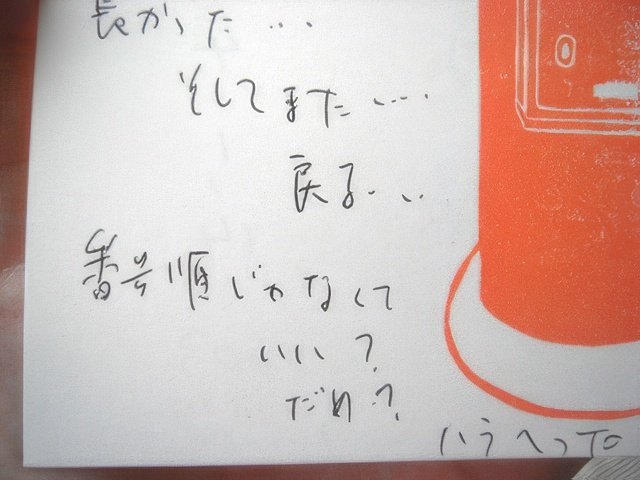 長かった…
そしてまた…
戻る…
番号順じゃなくて
いい?
だめ?
ハラへった